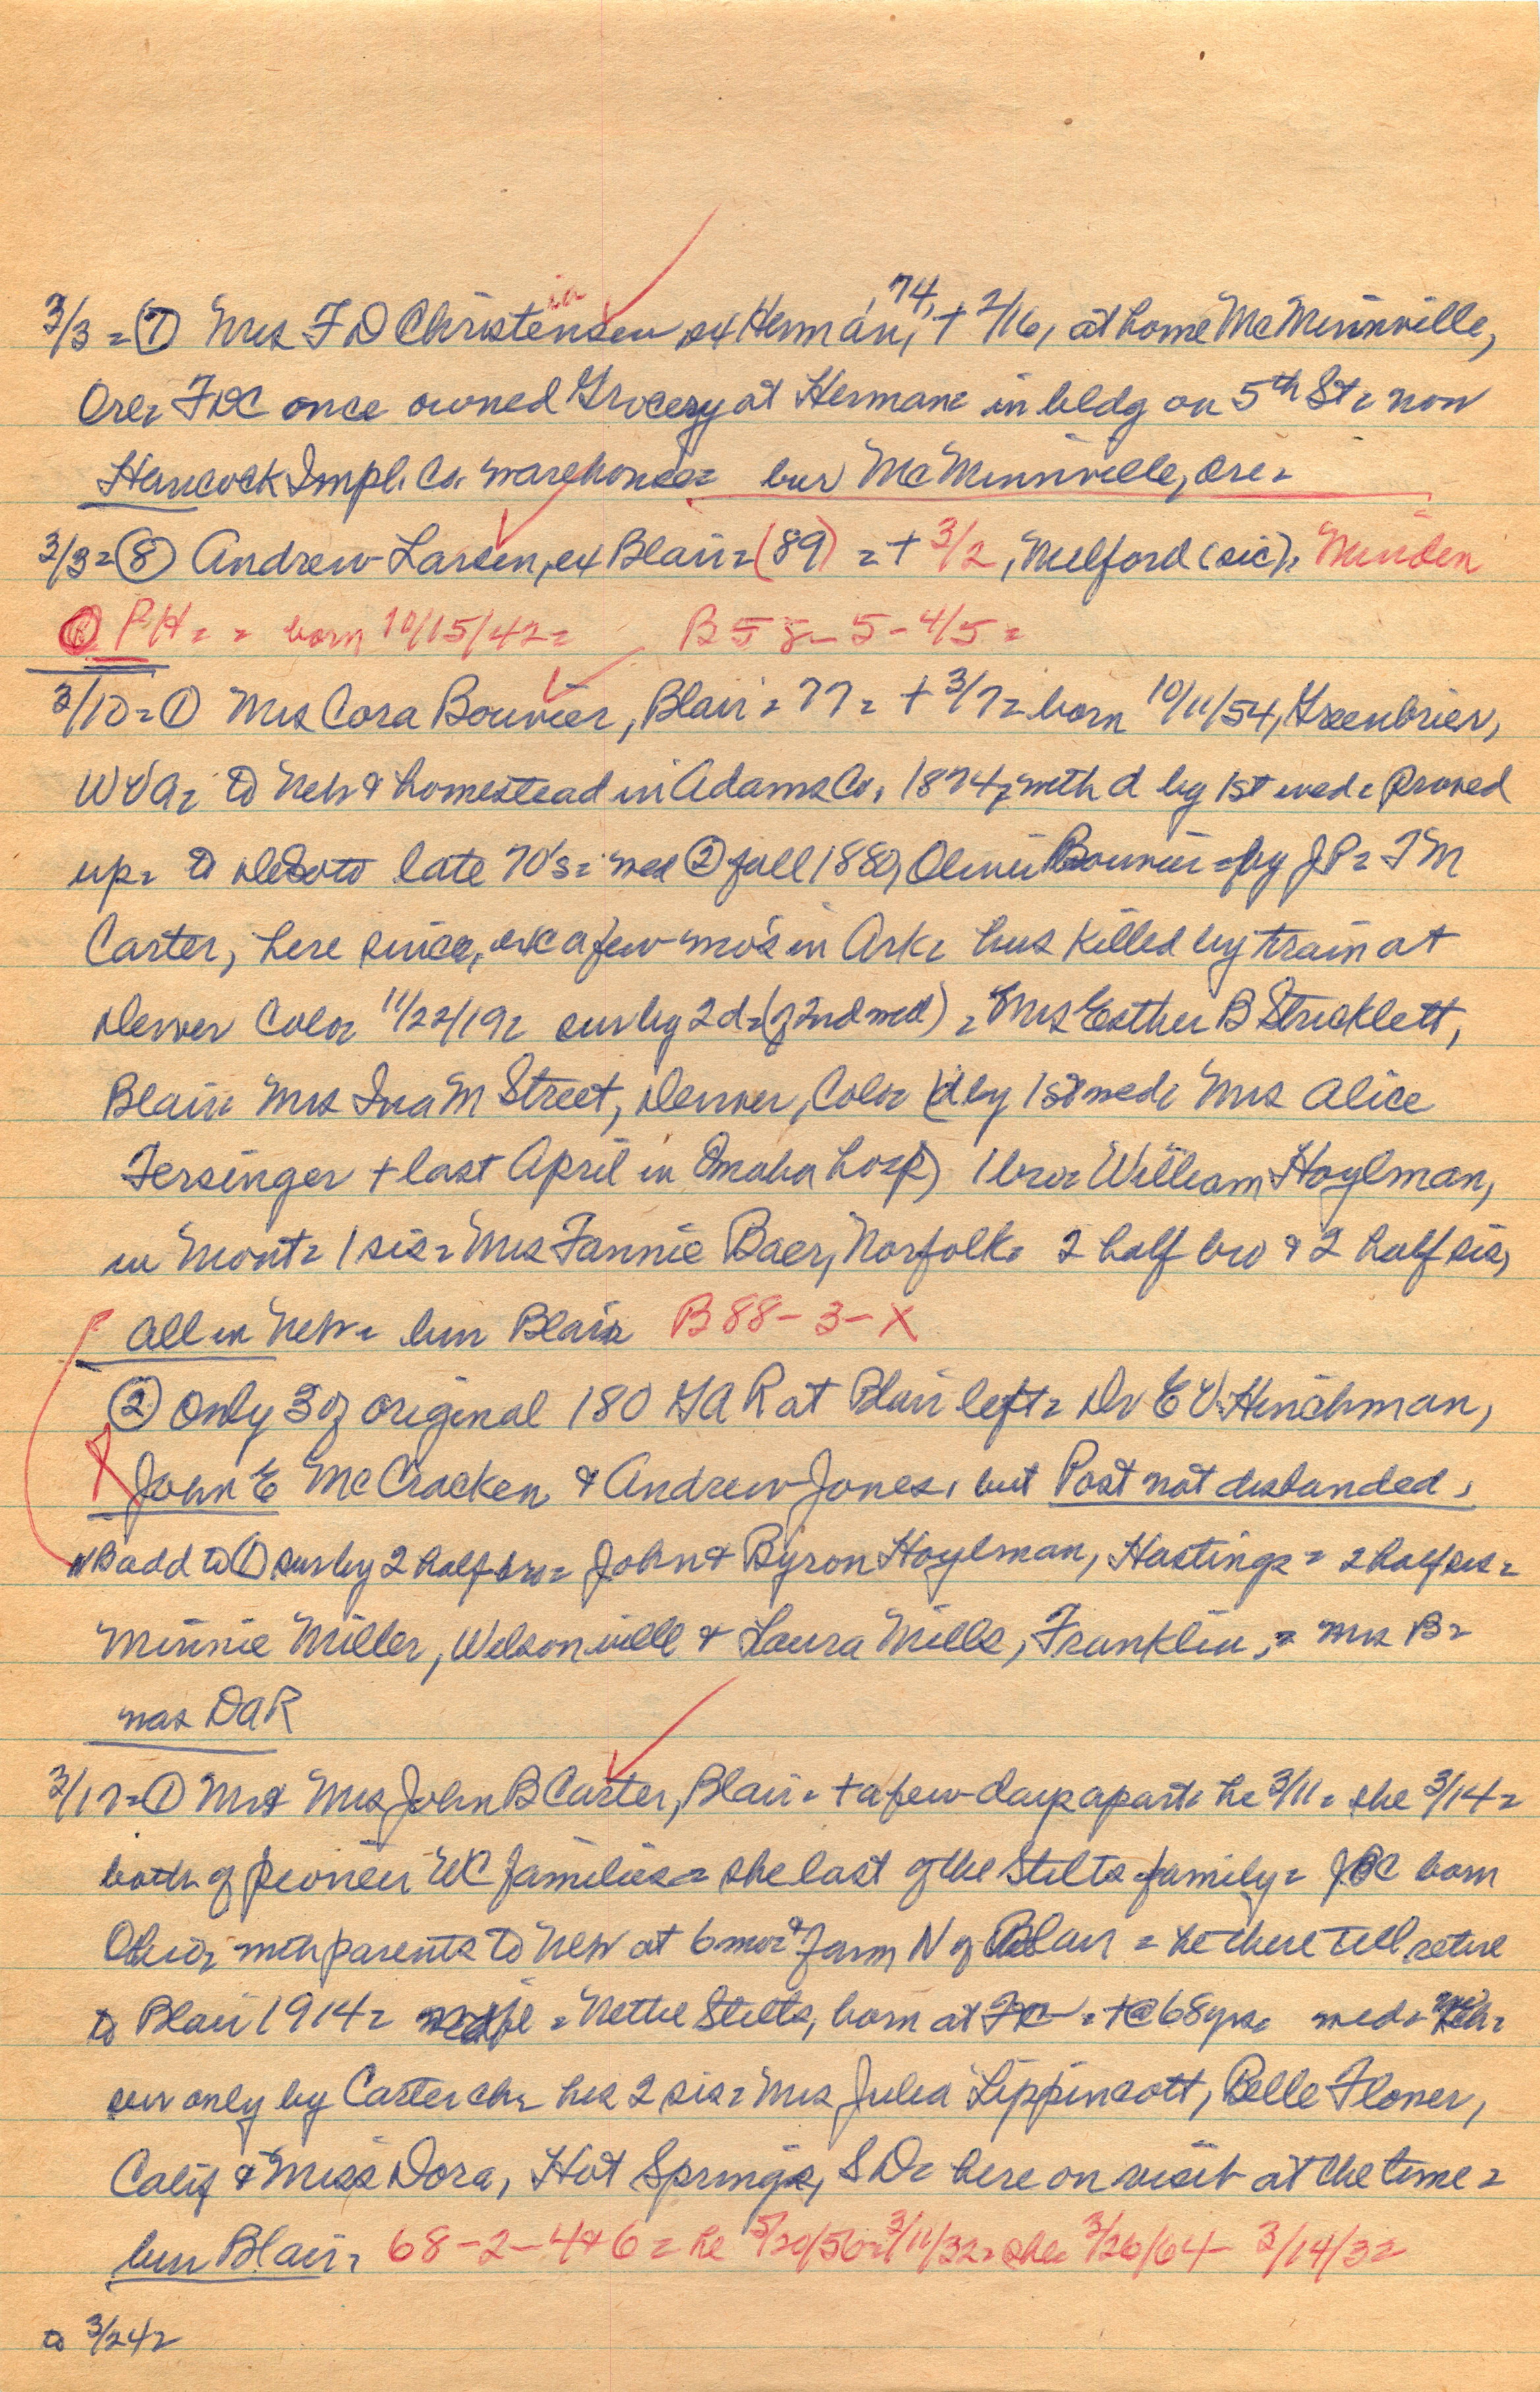 3/3 = (7) Mrs F D Christensen, ex Herman, 74, + 2/16, at home McMinnville,
Ore= FDC once owned Grocery at Herman= in bldg on 5th St= now
Hancock Impl. Co. warehouse= bur McMinnville, Ore=
3/3 = (8) Andrew Larsen, ex Blair= (89) = + 3/2, Milford (sic), Minden
PH= = born 10/15/42= B 58-5-4/5=
3/10 = (1) Mrs Cora Bouvier, Blair= 77= + 3/7= born 10/11/54, Greenbrier,
W Va= to Neb & homestead in Adams Co, 1874, with d by 1st wed= Proved
up= to DeSoto late 70's= wed (2) fall 1880, Oliver Bouvier= by J P= T M
Carter, here since, exc a few mos in Ark= hus killed by train at
Denver Colo= 11/22/19= sur by 2 d= (of 2nd wed) = Mrs Esther B Stricklett,
Blair= Mrs Ina M Street, Denver, Colo= (d by 1st wed= Mrs Alice
Fersinger + last April in Omaha hosp) 1 bro= William Hoylman,
in Mont= 1 sis= Mrs Fannie Baer, Norfolk= 2 half bro & 2 half sis,
all in Neb= bur Blair B 88-3-X
(2) Only 3 of original 180 GAR at Blair left= Dr E V Hinchman,
John E McCracken & Andrew Jones, but Post not disbanded,
add to (1) sur by 2 half bro= John & Byron Hoylman, Hastings= 2 half sis=
Minnie Miller, Wilsonville & Laura Mills, Franklin, = Mrs B=
was DAR
3/17 = (1) Mr & Mrs John B Carter, Blair= + a few days apart= he 3/11= she 3/14=
both of pioneer WC families= she last of the Stilts family= JBC born
Ohio, with parents to Neb at 6 mos & farm N of Blair= he there till retire
to Blair 1914= wife= Nettie Stilts, born at FC= + @ 68 yrs= wed=
sur only by Carter ch= his 2 sis= Mrs Julia Lippincott, Belle Flower,
Calif & Miss Dora, Hot Springs, SD= here on visit at the time=
bur Blair, 68-2-4&6= he 5/20/56= 3/11/32= she= 3/26/64- 3/14/32
to 3/24=